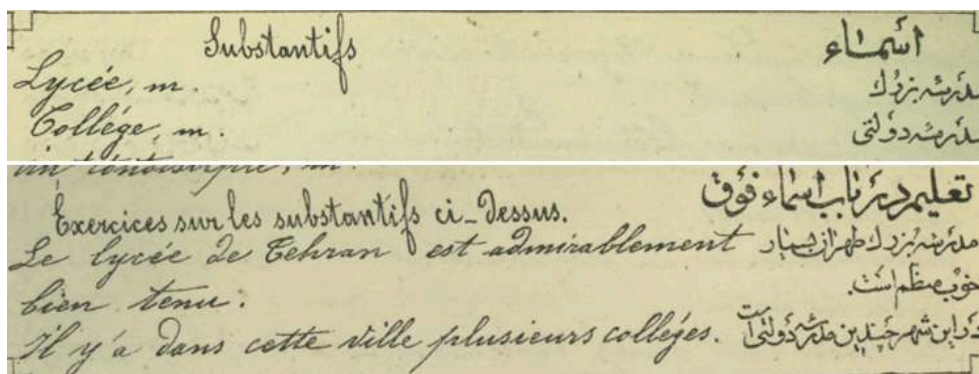 Substantifs اسماء
Lycée, m. مدرسه بزرك
Collége, m. مدرسه دولتی
Exercices sur les substantifs ci-dessus. تعلیم در باب اسماء فوق
Le lycée de Tehran est admirablement مدرسه بزرك طهران بسیار
bien tenu. خوب منظم است.
Il y'a dans cette ville plusieurs colléges. در این شهر چندین مدرسه دولتی است